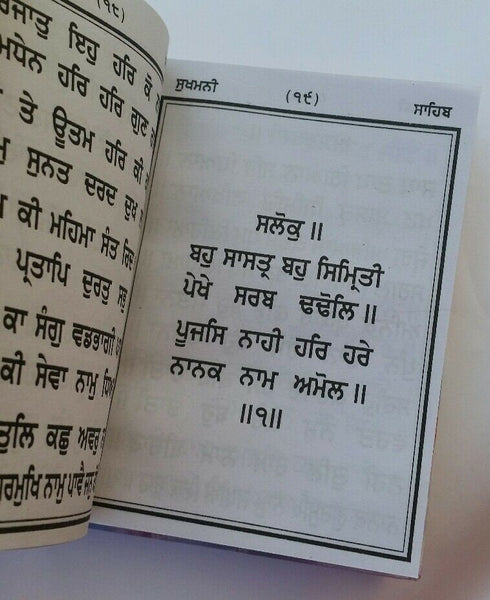 (੧੮)
ਇਹੁ ਹਰਿ ਕੋ
ਹਰਿ ਹਰਿ ਗੁਣ
ਤੇ ਊਤਮ ਹਰਿ ਕੀ
ਸੁਨਤ ਦਰਦ ਦੁਖ
ਕੀ ਮਹਿਮਾ ਸੰਤ ਰਿਦ
ਪ੍ਰਤਾਪਿ ਦੁਰਤੁ ਸਭੁ
ਕਾ ਸੰਗੁ ਵਡਭਾਗੀ
ਕੀ ਸੇਵਾ ਨਾਮੁ ਧਿਆ
ਤੁਲਿ ਕਛੁ ਅਵਰੁ
ਨਾਮੁ ਪਾਵੈ ਜਨੁ
ਸੁਖਮਨੀ (੧੯) ਸਾਹਿਬ
ਸਲੋਕੁ ॥
ਬਹੁ ਸਾਸਤ੍ਰ ਬਹੁ ਸਿਮ੍ਰਿਤੀ
ਪੇਖੇ ਸਰਬ ਢਢੋਲਿ ॥
ਪੂਜਸਿ ਨਾਹੀ ਹਰਿ ਹਰੇ
ਨਾਨਕ ਨਾਮ ਅਮੋਲ ॥
॥੧॥